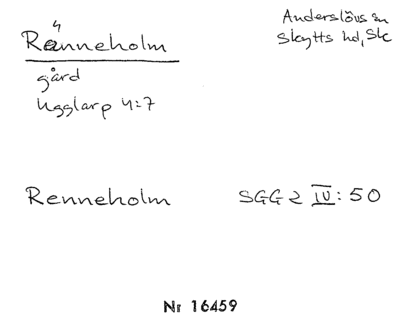 Ränneholm
Anderslövs sn
Skytts hd, Sk
gård
Ugglarp 4:7
Renneholm
SGG 2 IV: 50
Nr 16459